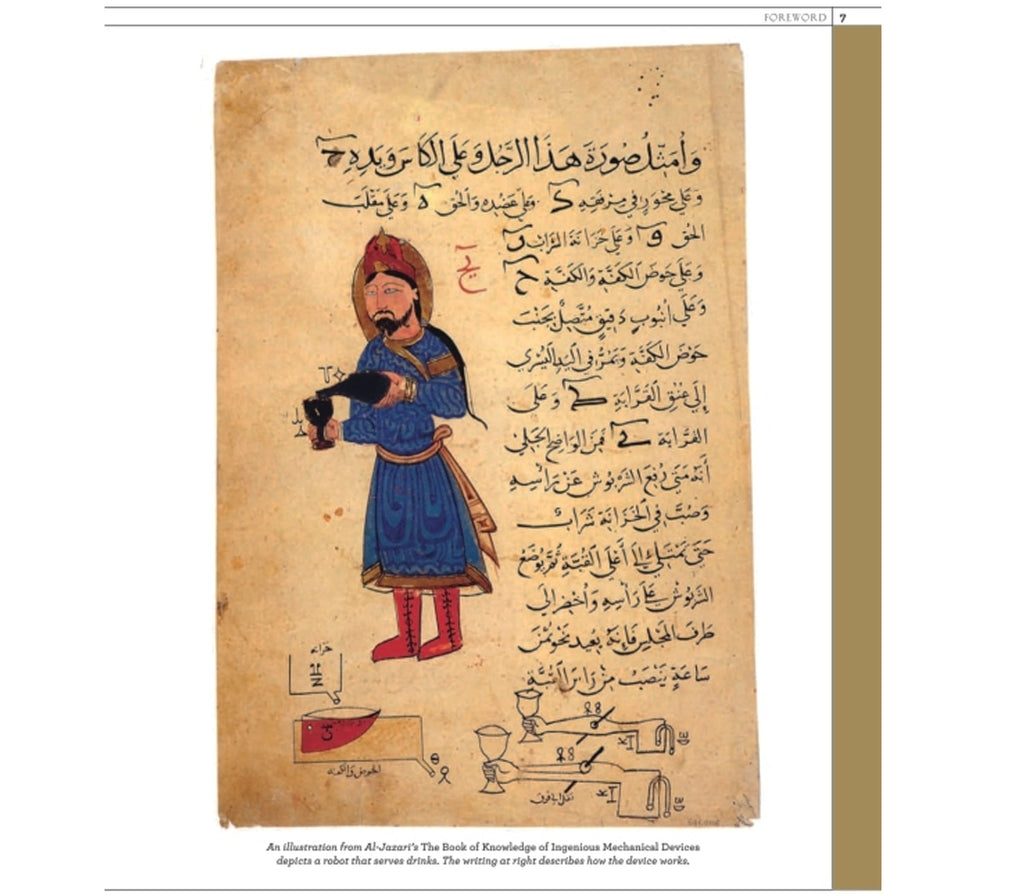 FOREWORD 7
وَأُمَثِّلُ صُورَةَ هَذَا الرَّجُلِ وَعَلَى الكَاسِ وَيَدِهِ ح
وَعَلَى مِحْوَرٍ فِي مِرْفَقِهِ ك وَعَلَى عَضُدِهِ وَالحُق ه وَعَلَى مَقْلَبِ
الحُق و وَعَلَى خَزَانَةِ الشَّرَابِ
وَعَلَى حَوْضِ الكَفَّةِ وَالكَفَّةِ ح
وَعَلَى أُنْبُوبٍ دَقِيقٍ مُتَّصِلٍ بِجَنْبِ
حَوْضِ الكَفَّةِ وَيَمُرُّ فِي اليَدِ اليُسْرَى
إِلَى عُنُقِ القَرَّابَةِ وَعَلَى
القَرَّابَةِ فَمِنَ الوَاضِحِ الجَلِيِّ
أَنَّهُ مَتَى رُفِعَ الشَّرْبُوشُ عَنْ رَأْسِهِ
وَصُبَّ فِي الخَزَانَةِ شَرَابٌ
حَتَّى يَمْتَلِئَ إِلَى أَعْلَى القُبَّةِ ثُمَّ يُوضَعُ
الشَّرْبُوشُ عَلَى رَأْسِهِ وَأُحْضِرَ إِلَى
طَرَفِ المَجْلِسِ فَإِنَّهُ بُعَيْدَ نَحْوِ ثُمْنِ
سَاعَةٍ يَنْصَبُّ مِنْ رَأْسِ القُبَّةِ
خزانه
الحوض والكفه
An illustration from Al-Jazari's The Book of Knowledge of Ingenious Mechanical Devices
depicts a robot that serves drinks. The writing at right describes how the device works.